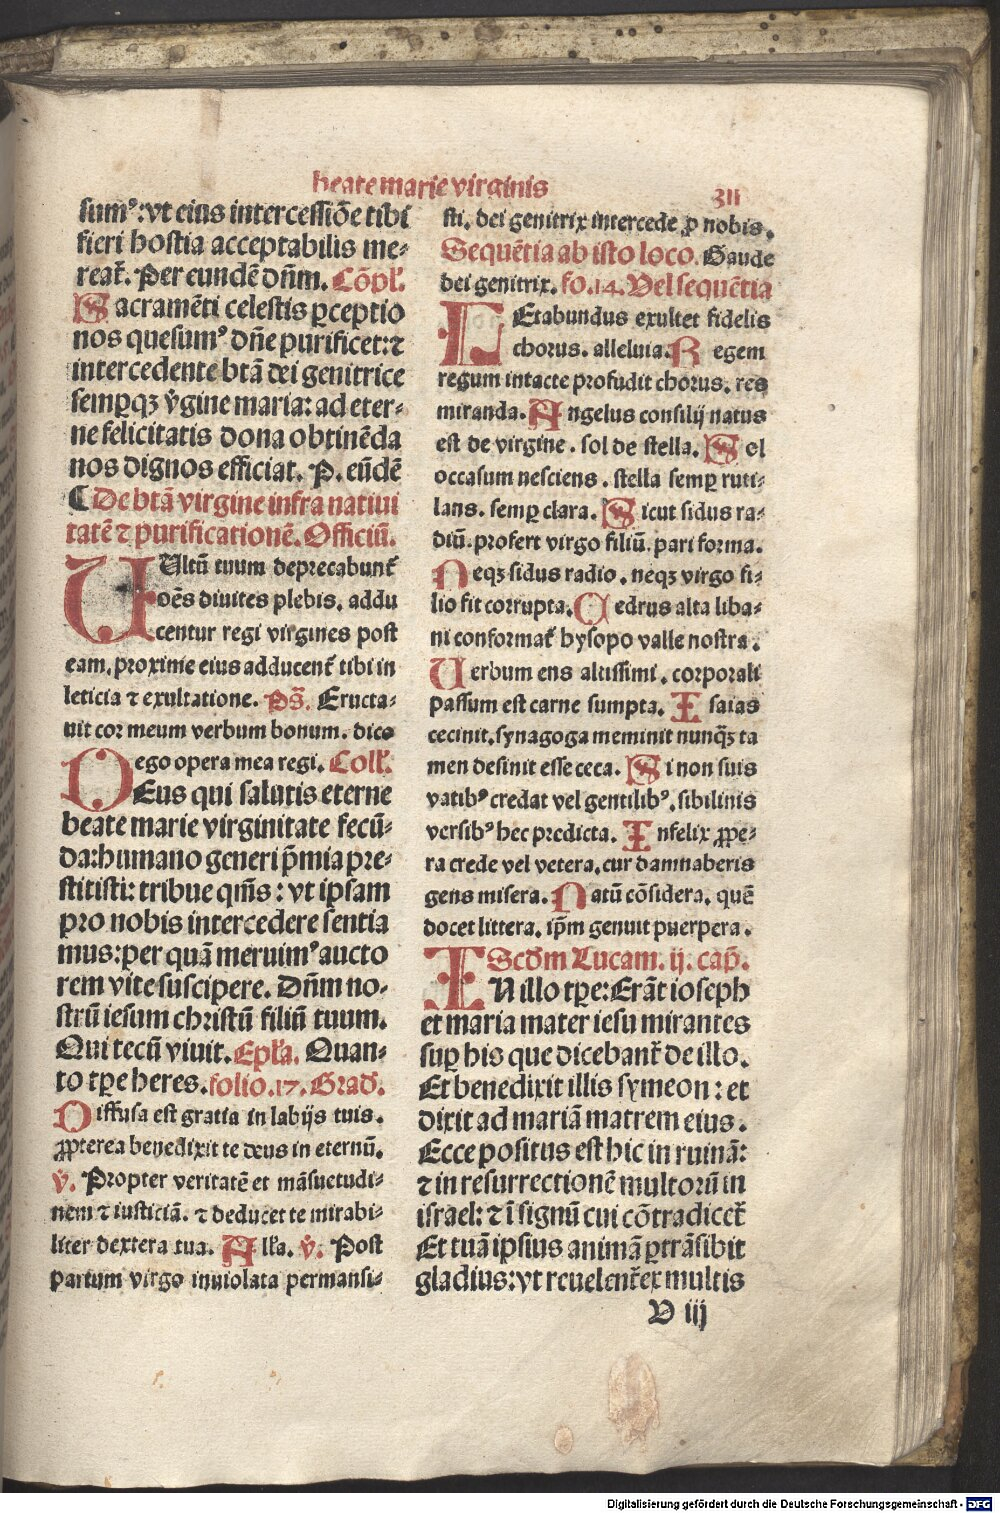 beate marie virginis
311
sumꝰ: vt eius intercessiōe tibi
fieri hostia acceptabilis me⸗
reat̄. Per eundē dn̄m. Cōpl̄.
Sacramēti celestis ꝑceptio
nos quesumꝰ dn̄e purificet: ⁊
intercedente btā dei genitrice
sempqꝫ v̄gine maria: ad eter⸗
ne felicitatis dona obtinēda
nos dignos efficiat. P. eūdē
De btā virgine infra natiui
tatē ⁊ purificationē. Officiū.
VUltū tuum deprecabunt̄
oēs diuites plebis. addu
centur regi virgines post
eam. proxime eius adducent̄ tibi in
leticia ⁊ exultatione. Ps̄. Eructa⸗
uit cor meum verbum bonum. dico
ego opera mea regi. Coll̄.
DEus qui salutis eterne
beate marie virginitate fecū⸗
da: humano generi p̄mia pre⸗
stitisti: tribue qm̄s: vt ipsam
pro nobis intercedere sentia
mus: per quā meruimꝰ aucto
rem vite suscipere. Dn̄m no⸗
strū iesum christū filiū tuum.
Qui tecū viuit. Epl̄a. Quan⸗
to tꝑe heres. folio .17. Grad̄.
Diffusa est gratia in labijs tuis.
ꝓpterea benedixit te deus in eternū.
v̄. Propter veritatē et māsuetudi⸗
nem ⁊ iusticiā. ⁊ deducet te mirabi⸗
liter dextera tua. All̄a. v̄. Post
partum virgo inuiolata permansi⸗
sti. dei genitrix intercede ꝓ nobis.
Sequētia ab isto loco. Gaude
dei genitrix. fo. 14. Vel sequētia
LEtabundus exultet fidelis
chorus. alleluia. Regem
regum intacte profudit chorus. res
miranda. Angelus consilij natus
est de virgine. sol de stella. Sol
occasum nesciens. stella semꝑ ruti⸗
lans. semꝑ clara. Sicut sidus ra⸗
diū. profert virgo filiū. pari forma.
Neqꝫ sidus radio. neqꝫ virgo fi⸗
lio fit corrupta. Cedrus alta liba⸗
ni conformat̄ hysopo valle nostra.
Verbum ens altissimi. corporali
passum est carne sumpta. Isaias
cecinit. synagoga meminit nunqꝫ ta
men desinit esse ceca. Si non suis
vatibꝰ credat vel gentilibꝰ. sibilinis
versibꝰ hec predicta. Infelix ꝓpe⸗
ra crede vel vetera. cur damnaberis
gens misera. Natū cōsidera. quē
docet littera. ip̄m genuit puerpera.
Scd̄m Lucam. ij. cap̄.
IN illo tꝑe: Erāt ioseph
et maria mater iesu mirantes
suꝑ his que dicebant̄ de illo.
Et benedixit illis symeon: et
dixit ad mariā matrem eius.
Ecce positus est hic in ruinā:
⁊ in resurrectionē multorū in
israel: ⁊ ī signū cui cōtradicet̄
Et tuā ipsius animā ꝑtrāsibit
gladius: vt reuelent̄ ex multis
V iij
Digitalisierung gefördert durch die Deutsche Forschungsgemeinschaft - DFG